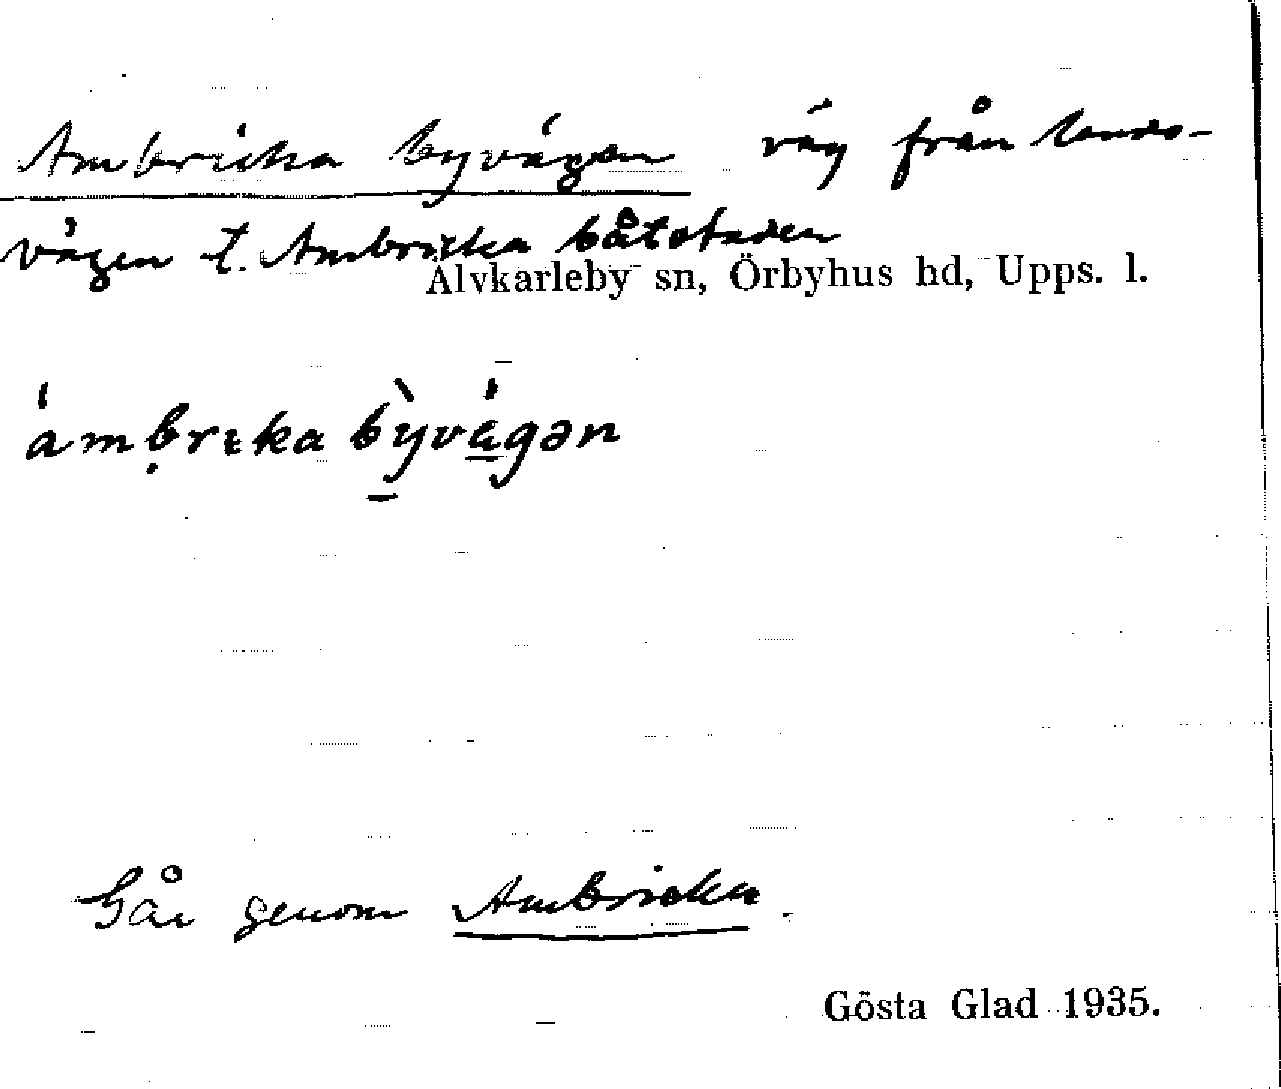 Ambricka byvägen väg från lands-
vägen t. Ambricka båtstaden
Älvkarleby sn, Örbyhus hd, Upps. l.
ámbrɩka bỳvágən
Går genom Ambricka.
Gösta Glad 1935.